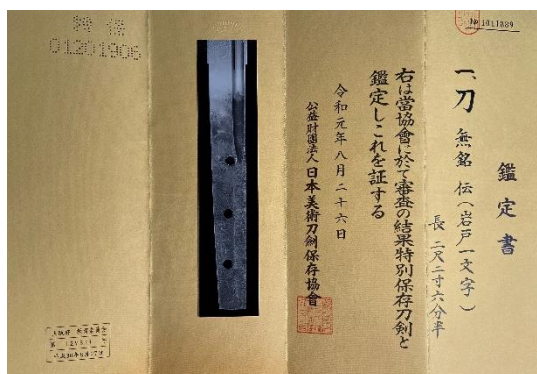 № 1011889
鑑定書
一、刀 無銘 伝(岩戸一文字)
長 二尺二寸六分半
右は當協會に於て審査の結果特別保存刀劍と
鑑定しこれを証する
令和元年八月二十六日
公益財団法人 日本美術刀劍保存協會
特保
01201906